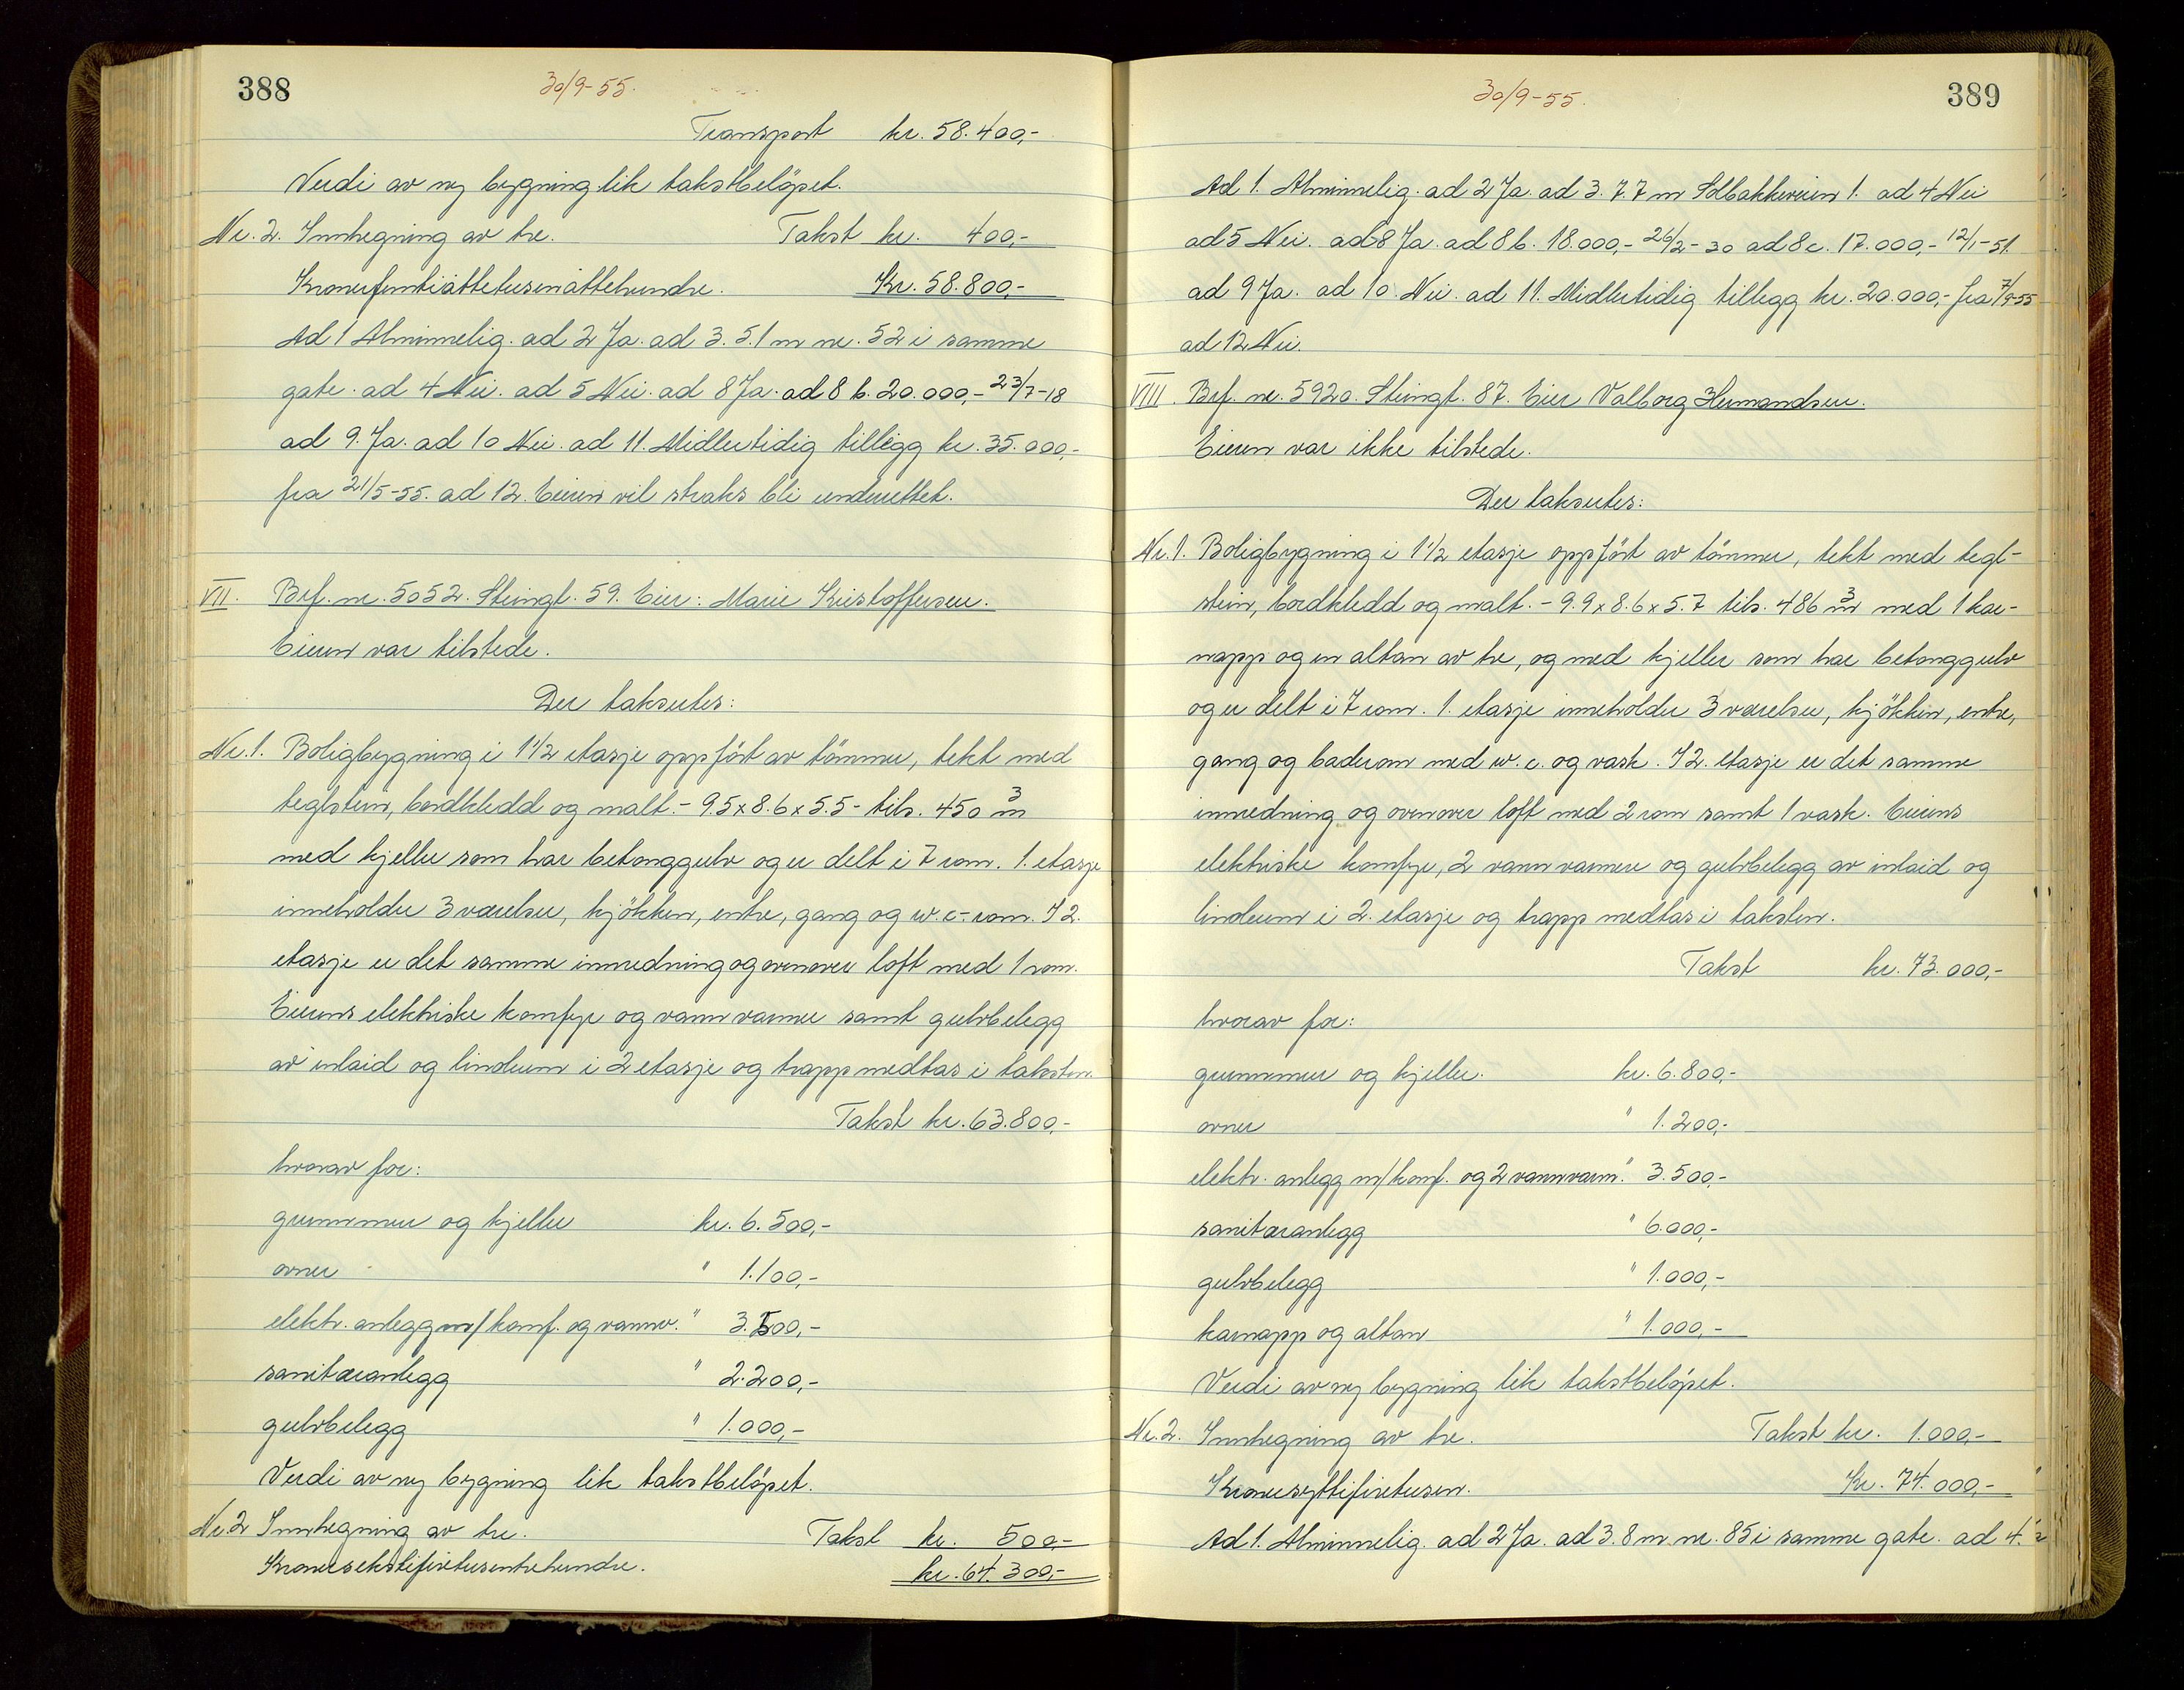 388
30/9-55.
Transport kr. 58.400,-
Verdi av ny bygning lik takstbelöpet.
Nr. 2. Innhegning av tre. Takst kr. 400,-
Kronerfemtiåttetusenåttehundre. Kr. 58.800,-
Ad 1 Alminnelig. ad 2 Ja. ad 3. 5.1 m nr. 52 i samme
gate. ad 4 Nei. ad 5 Nei. ad 8 Ja. ad 8 b. 20.000,- 23/7-18
ad 9. Ja. ad 10 Nei. ad 11. Midlertidig tillegg kr. 35.000,-
fra 21/5-55. ad 12. Eieren vil straks bli underrettet.
VII. Brf. nr. 5052. Steingt. 59. Eier: Marie Kristoffersen.
Eieren var tilstede.
Der takseertes:
Nr. 1. Boligbygning i 1 1/2 etasje oppfört av tömmer, tekt med
teglstein, bordkledd og malt. - 9.5 x 8.6 x 5.5 - tils. 450 m3
med kjeller som har betonggulv og er delt i 7 rom. 1. etasje
inneholder 3 værelser, kjökken, entre, gang og w.c.-rom. I 2.
etasje er det samme innredning og ovenover loft med 1 rom.
Eierens elektriske komfyr og vannvarmer samt gulvbelegg
av inlaid og linoleum i 2 etasje og trapp medtas i taksten.
Takst kr. 63.800,-
hvorav for:
grunnmur og kjeller kr. 6.500,-
ovner " 1.100,-
elektr. anlegg m/komf. og vannv. " 3.500,-
sanitæranlegg " 2.200,-
gulvbelegg " 1.000,-
Verdi av ny bygning lik takstbelöpet.
Nr. 2 Innhegning av tre. Takst kr. 500,-
Kronersekstifiretusentrehundre. kr. 64.300,-
389
30/9-55.
Ad 1. Alminnelig. ad 2 Ja. ad 3. 7.7 m Solbakkeveien 1. ad 4 Nei
ad 5 Nei. ad 8 Ja. ad 8 b. 18.000,- 26/2-30 ad 8 c. 17.000,- 12/1-51.
ad 9 Ja. ad 10. Nei. ad 11. Midlertidig tillegg kr. 20.000,- fra 7/9-55
ad 12 Nei.
VIII. Brf. nr. 5920. Steingt. 87. Eier Valborg Hermandsen.
Eieren var ikke tilstede.
Der takseertes:
Nr. 1. Boligbygning i 1 1/2 etasje oppfört av tömmer, tekt med tegl-
stein, bordkledd og malt. - 9.9 x 8.6 x 5.7 tils. 486 m3 med 1 kar-
napp og en altan av tre, og med kjeller som har betonggulv
og er delt i 7 rom. 1. etasje inneholder 3 værelser, kjökken, entre,
gang og baderom med w.c. og vask. I 2. etasje er det samme
innredning og ovenover loft med 2 rom samt 1 vask. Eierens
elektriske komfyr, 2 vannvarmere og gulvbelegg av inlaid og
linoleum i 2. etasje og trapp medtas i taksten.
Takst kr. 73.000,-
hvorav for:
grunnmur og kjeller. kr. 6.800,-
ovner " 1.200,-
elektr. anlegg m/komf. og 2 vannvarm. " 3.500,-
sanitæranlegg " 6.000,-
gulvbelegg " 1.000,-
karnapp og altan " 1.000,-
Verdi av ny bygning lik takstbelöpet.
Nr. 2. Innhegning av tre. Takst kr. 1.000,-
Kronersyttifiretusen. Kr. 74.000,-
Ad 1. Alminnelig. ad 2 Ja. ad 3. 8 m nr. 85 i samme gate. ad 4.